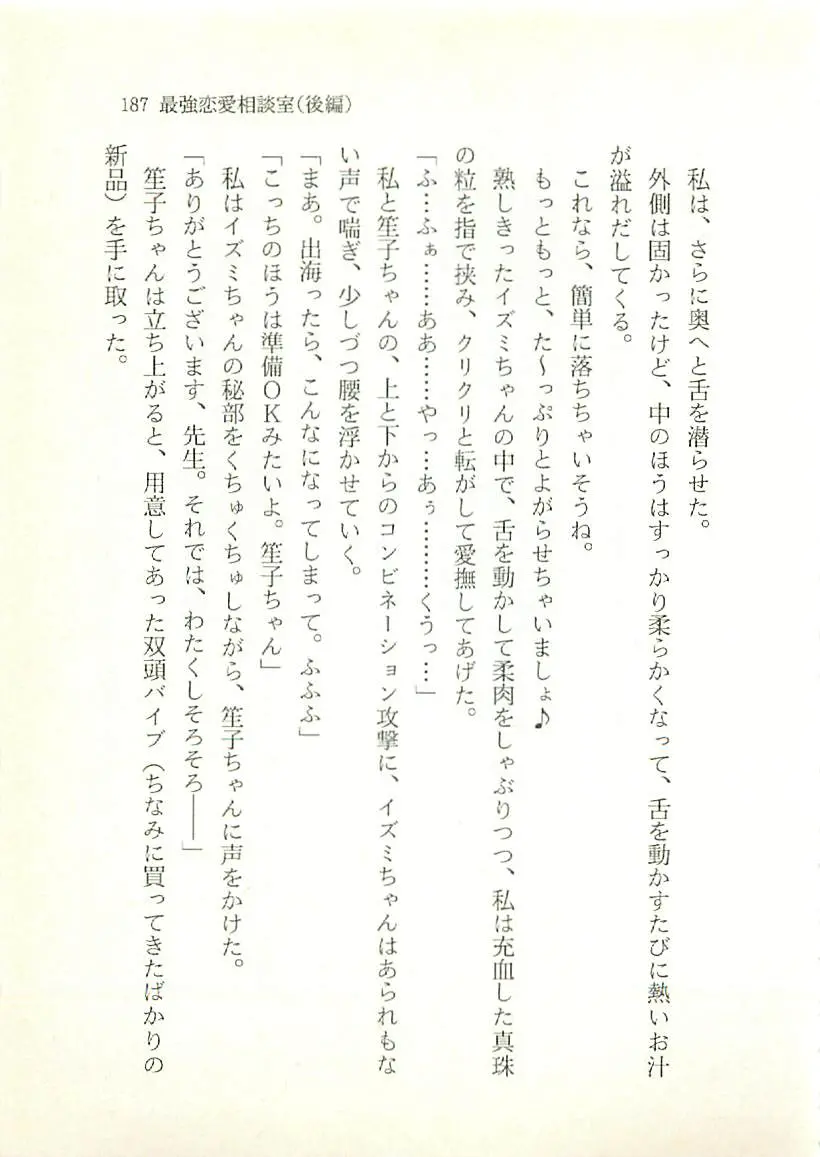 187 最強恋愛相談室(後編)
私は、さらに奥へと舌を潜らせた。
外側は固かったけど、中のほうはすっかり柔らかくなって、舌を動かすたびに熱いお汁
が溢れだしてくる。
これなら、簡単に落ちちゃいそうね。
もっともっと、た～っぷりとよがらせちゃいましょ♪
熟しきったイズミちゃんの中で、舌を動かして柔肉をしゃぶりつつ、私は充血した真珠
の粒を指で挟み、クリクリと転がして愛撫してあげた。
「ふ…ふぁ……ああ……やっ…あぅ………くうっ…」
私と笙子ちゃんの、上と下からのコンビネーション攻撃に、イズミちゃんはあられもな
い声で喘ぎ、少しづつ腰を浮かせていく。
「まあ。出海ったら、こんなになってしまって。ふふふ」
「こっちのほうは準備OKみたいよ。笙子ちゃん」
私はイズミちゃんの秘部をくちゅくちゅしながら、笙子ちゃんに声をかけた。
「ありがとうございます、先生。それでは、わたくしそろそろ――」
笙子ちゃんは立ち上がると、用意してあった双頭バイブ（ちなみに買ってきたばかりの
新品）を手に取った。